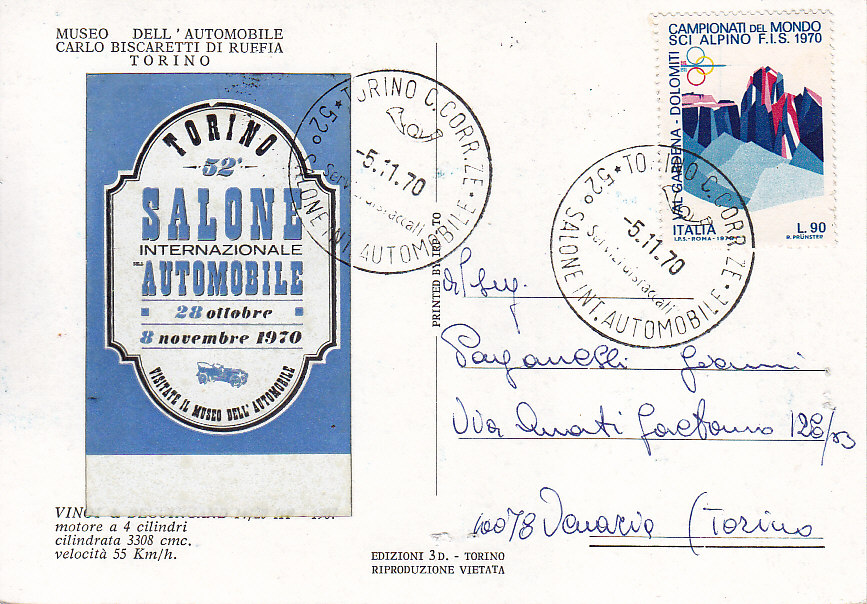 MUSEO DELL'AUTOMOBILE
CARLO BISCARETTI DI RUFFIA
TORINO
TORINO
52°
SALONE
INTERNAZIONALE
DELL'
AUTOMOBILE
28 ottobre
8 novembre 1970
VISITATE IL MUSEO DELL'AUTOMOBILE
motore a 4 cilindri
cilindrata 3308 cmc.
velocità 55 Km/h.
TORINO C.CORR.ZE
-5.11.70
Servizi distaccati
* 52° SALONE INT. AUTOMOBILE *
PRINTED BY
EDIZIONI 3D. - TORINO
RIPRODUZIONE VIETATA
CAMPIONATI DEL MONDO
SCI ALPINO F.I.S. 1970
VAL GARDENA - DOLOMITI
ITALIA
L.90
I.P.S.-ROMA-1970
R. PRÜNSTER
* TORINO C.CORR.ZE
-5.11.70
Servizi distaccati
52° SALONE INT. AUTOMOBILE *
Paganelli Gianni
Via Amati Gaetano 126/
10078 Venaria (Torino